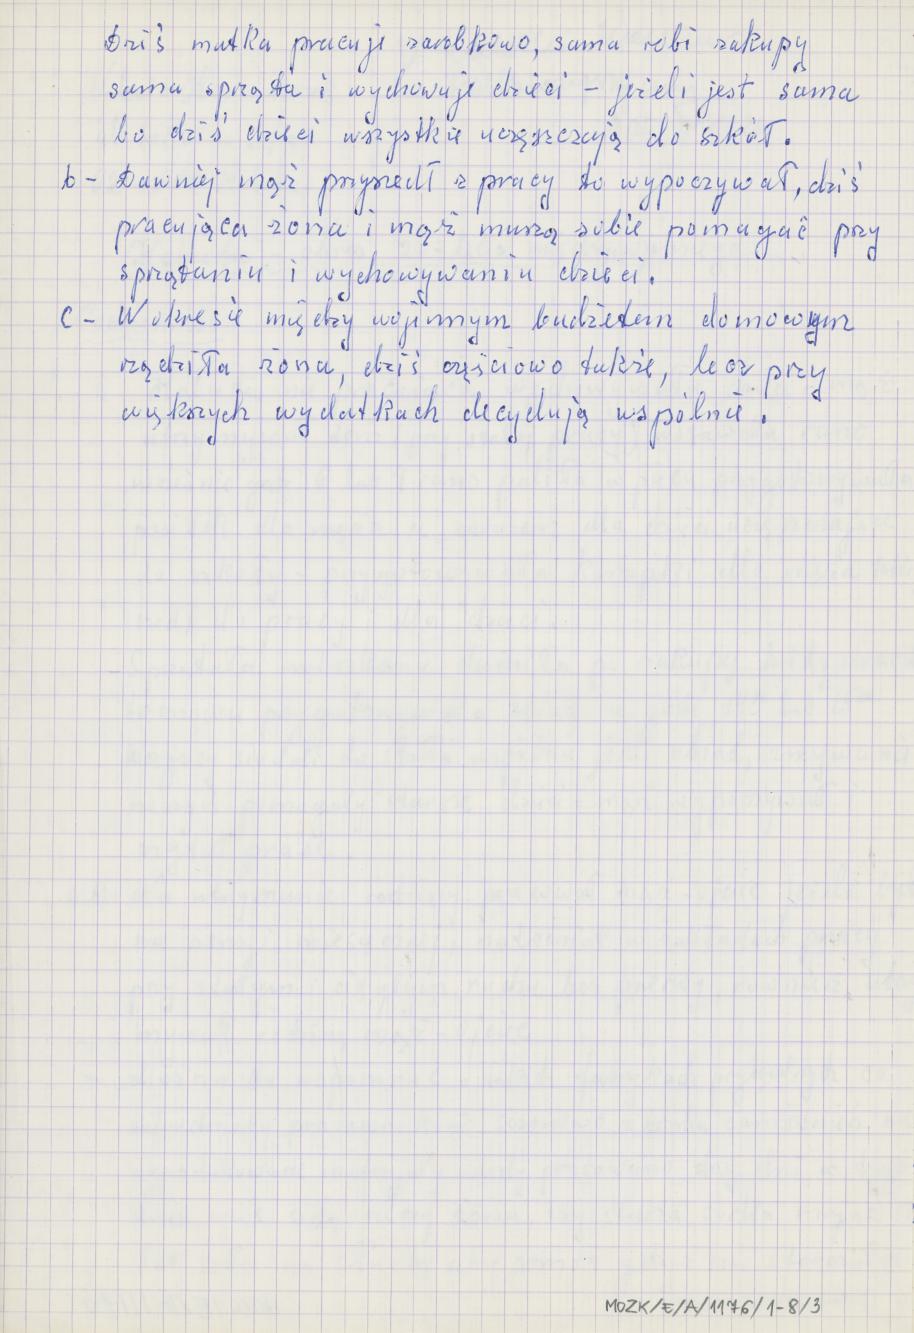 Dziś matka pracuje zarobkowo, sama robi zakupy
sama sprząta i wychowuje dzieci – jeżeli jest sama
bo dziś dzieci wszystkie uczęszczają do szkół.
b – Dawniej mąż przyszedł z pracy to wypoczywał, dziś
pracująca żona i mąż muszą sobie pomagać przy
sprzątaniu i wychowywaniu dzieci.
c – W okresie między wojennym budżetem domowym
rządziła żona, dziś częściowo także, lecz przy
większych wydatkach decydują wspólnie.
MOZK/E/A/1176/1-8/3